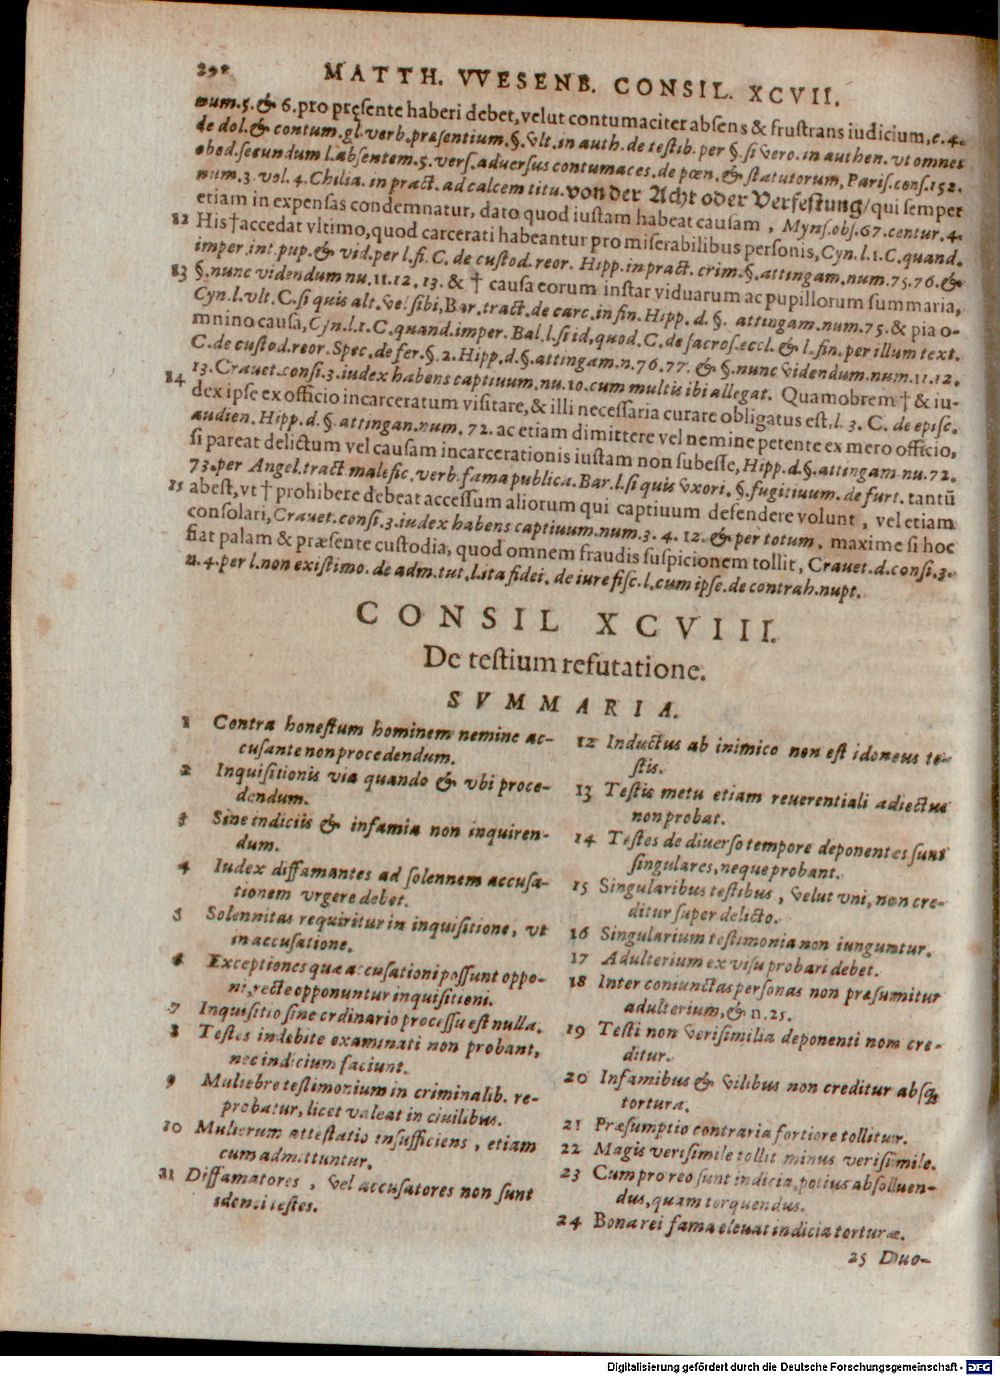 MATTH. VVESENB. CONSIL. XCVII.
num. 5. & 6. pro pręsente haberi debet, velut contumaciter absens & frustrans iudicium, c. 4.
de dol. & contum. gl. verb. præsentium. §. vlt. in auth. de testib. per §. si vero. in authen. vt omnes
obed. secundum l. absentem. 5. vers. aduersus contumaces. de pœn. & statutorum, Paris. cons. 152.
num. 3. vol. 4. Chilia. in pract. ad calcem titu. von der Acht oder Verfestung/ qui semper
etiam in expensas condemnatur, dato quod iustam habeat causam, Myns. obs. 67. centur. 4.
12 His † accedat vltimo, quod carcerati habeantur pro miserabilibus personis, Cyn. l. 1. C. quand.
imper. int. pup. & vid. per l. fi. C. de custod. reor. Hipp. in pract. crim. §. attingam. num. 75. 76. &
13 §. nunc videndum nu. 11. 12. 13. & † causa eorum instar viduarum ac pupillorum summaria,
Cyn. l. vlt. C. si quis alt. vel sibi, Bar. tract. de carc. in fin. Hipp. d. §. attingam. num. 75. & pia o-
mnino causa, Cyn. l. 1. C. quand. imper. Bal. l. si id, quod. C. de sacros. eccl. & l. fin. per illum text.
C. de custod. reor. Spec. de fer. §. 2. Hipp. d. §. attingam. n. 76. 77. & §. nunc videndum. num. 11. 12.
13. Crauet. consi. 3. iudex habens captiuum. nu. 10. cum multis ibi allegat. Quamobrem † & iu-
14 dex ipse ex officio incarceratum visitare, & illi necessaria curare obligatus est, l. 3. C. de episc.
audien. Hipp. d. §. attingan. num. 72. ac etiam dimittere vel nemine petente ex mero officio,
si pareat delictum vel causam incarcerationis iustam non subesse, Hipp. d. §. attingam. nu. 72.
73. per Angel. tract. malefic. verb. fama publica. Bar. l. si quis vxori. §. fugitiuum. de furt. tantū
15 abest, vt † prohibere debeat accessum aliorum qui captiuum defendere volunt, vel etiam
consolari, Crauet. consi. 3. iudex habens captiuum. num. 3. 4. 12. & per totum, maxime si hoc
fiat palam & præsente custodia, quod omnem fraudis suspicionem tollit, Crauet. d. consi. 3.
n. 4. per l. non existimo. de adm. tut. l. ita fidei. de iure fisc. l. cum ipse. de contrah. nupt.
CONSIL XCVIII.
De testium refutatione.
SVMMARIA.
1 Contra honestum hominem nemine ac-
cusante non procedendum.
2 Inquisitionis via quando & vbi proce-
dendum.
3 Sine indiciis & infamia non inquiren-
dum.
4 Iudex diffamantes ad solennem accusa-
tionem vrgere debet.
5 Solennitas requiritur in inquisitione, vt
in accusatione.
6 Exceptiones quæ accusationi possunt oppo-
ni, recte opponuntur inquisitioni.
7 Inquisitio sine ordinario processu est nulla.
8 Testes indebite examinati non probant,
nec indicium faciunt.
9 Muliebre testimonium in criminalib. re-
probatur, licet valeat in ciuilibus.
10 Mulierum attestatio insufficiens, etiam
cum admittuntur.
11 Diffamatores, vel accusatores non sunt
idonei testes.
12 Inductus ab inimico non est idoneus te-
stis.
13 Testis metu etiam reuerentiali adiectus
non probat.
14 Testes de diuerso tempore deponentes sunt
singulares, neque probant.
15 Singularibus testibus, velut vni, non cre-
ditur super delicto.
16 Singularium testimonia non iunguntur.
17 Adulterium ex visu probari debet.
18 Inter coniunctas personas non præsumitur
adulterium, & n. 25.
19 Testi non verisimilia deponenti non cre-
ditur.
20 Infamibus & vilibus non creditur absq;
tortura.
21 Præsumptio contraria fortiore tollitur.
22 Magis verisimile tollit minus verisimile.
23 Cum pro reo sunt indicia, potius absoluen-
dus, quam torquendus.
24 Bona rei fama eleuat indicia torturæ.
25 Duo-
Digitalisierung gefördert durch die Deutsche Forschungsgemeinschaft - DFG